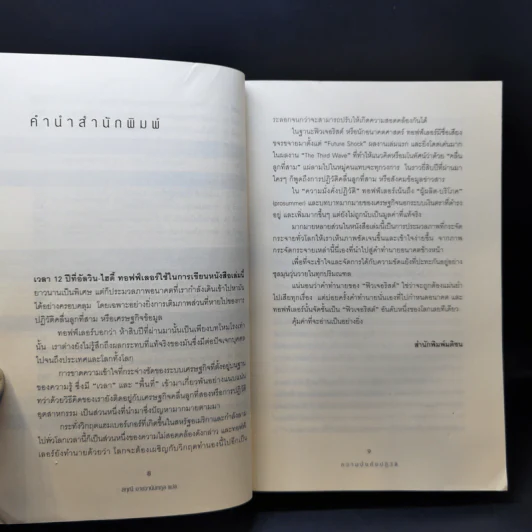 คำนำสำนักพิมพ์
เวลา 12 ปีที่อัลวิน-ไฮดี้ ทอฟฟ์เลอร์ใช้ในการเขียนหนังสือเล่มนี้
ยาวนานเป็นพิเศษ แต่ก็ประมวลภาพอนาคตที่เรากำลังเดินเข้าไปหามัน
ได้อย่างครอบคลุม โดยเฉพาะอย่างยิ่งการเติมภาพส่วนที่หายไปของการ
ปฏิวัติคลื่นลูกที่สาม หรือเศรษฐกิจข้อมูล
ทอฟฟ์เลอร์บอกว่า ห้าสิบปีที่ผ่านมานั้นเป็นเพียงบทโหมโรงเท่า
นั้น เราต่างยังไม่รู้สึกถึงผลกระทบที่แท้จริงของมันซึ่งมีต่อปัจเจกบุคคล
ไปจนถึงประเทศและโลกทั้งโลก
การขาดความเข้าใจที่กระจ่างชัดของระบบเศรษฐกิจที่ตั้งอยู่บนฐาน
ของความรู้ ซึ่งมี "เวลา" และ "พื้นที่" เข้ามาเกี่ยวพันอย่างแนบแน่น
กว่าด้วยวิธีคิดของเรายังติดอยู่กับเศรษฐกิจคลื่นที่สองหรือ
อุตสาหกรรม เป็นส่วนหนึ่งที่นำมาซึ่งปัญหามากมายตามมา
กระทั่งวิกฤตแฮมเบอร์เกอร์ที่เกิดขึ้นในสหรัฐอเมริกาและกำลังลาม
ไปทั่วโลกเวลานี้ก็เป็นส่วนหนึ่งของความไม่สอดคล้องดังกล่าว และทอฟฟ์
เลอร์ยังทำนายด้วยว่า โลกจะต้องเผชิญกับวิกฤตทำนองนี้ไปอีกเป็น
ระลอกจนกว่าจะสามารถปรับให้เกิดความสอดคล้องกันได้
ในฐานะฟิวเจอริสต์ หรือนักอนาคตศาสตร์ ทอฟฟ์เลอร์มีชื่อเสียง
ขจรขจายมาตั้งแต่ "Future Shock" ผลงานเล่มแรก และยิ่งโดดเด่นมาก
ในผลงาน "The Third Wave" ที่ทำให้แนวคิดหรือมโนทัศน์ว่าด้วย "คลื่น
ลูกที่สาม" แผ่ลามไปในหมู่คนแทบจะทุกวงการ ในราวยี่สิบปีที่ผ่านมา
ใครๆ ก็พูดถึงการปฏิวัติคลื่นลูกที่สาม หรือสังคมข้อมูลข่าวสาร
ใน "ความมั่งคั่งปฏิวัติ" ทอฟฟ์เลอร์เน้นถึง "ผู้ผลิต-บริโภค"
(prosumer) และบทบาทมากมายของเศรษฐกิจนอกระบบเงินตราที่ดำรง
อยู่ และเพิ่มมากขึ้นๆ แต่ยังไม่ถูกนับเป็นมูลค่าที่แท้จริง
มากมายหลายส่วนในหนังสือเล่มนี้เป็นการประมวลภาพที่กระจัด
กระจายทั่วโลกให้เราเห็นภาพชัดเจนขึ้นและเข้าใจง่ายขึ้น จากภาพ
กระจัดกระจายเหล่านี้นี่เองที่นำไปสู่การทำนายอนาคตข้างหน้า
เพื่อที่จะเข้าใจและจัดการได้กับความขัดแย้งที่ปะทะกันอยู่อย่าง
ชุลมุนวุ่นวายในทุกปริมณฑล
แน่นอนว่าคำทำนายของ "ฟิวเจอริสต์" ใช่ว่าจะถูกต้องแม่นยำ
ไปเสียทุกเรื่อง แต่บ่อยครั้งคำทำนายนั่นเองที่ไปกำหนดอนาคต และ
ทอฟฟ์เลอร์นั้นจัดขึ้นเป็น "ฟิวเจอริสต์" อันดับหนึ่งของโลกเลยทีเดียว
คุ้มค่าที่จะอ่านเป็นอย่างยิ่ง
สำนักพิมพ์มติชน